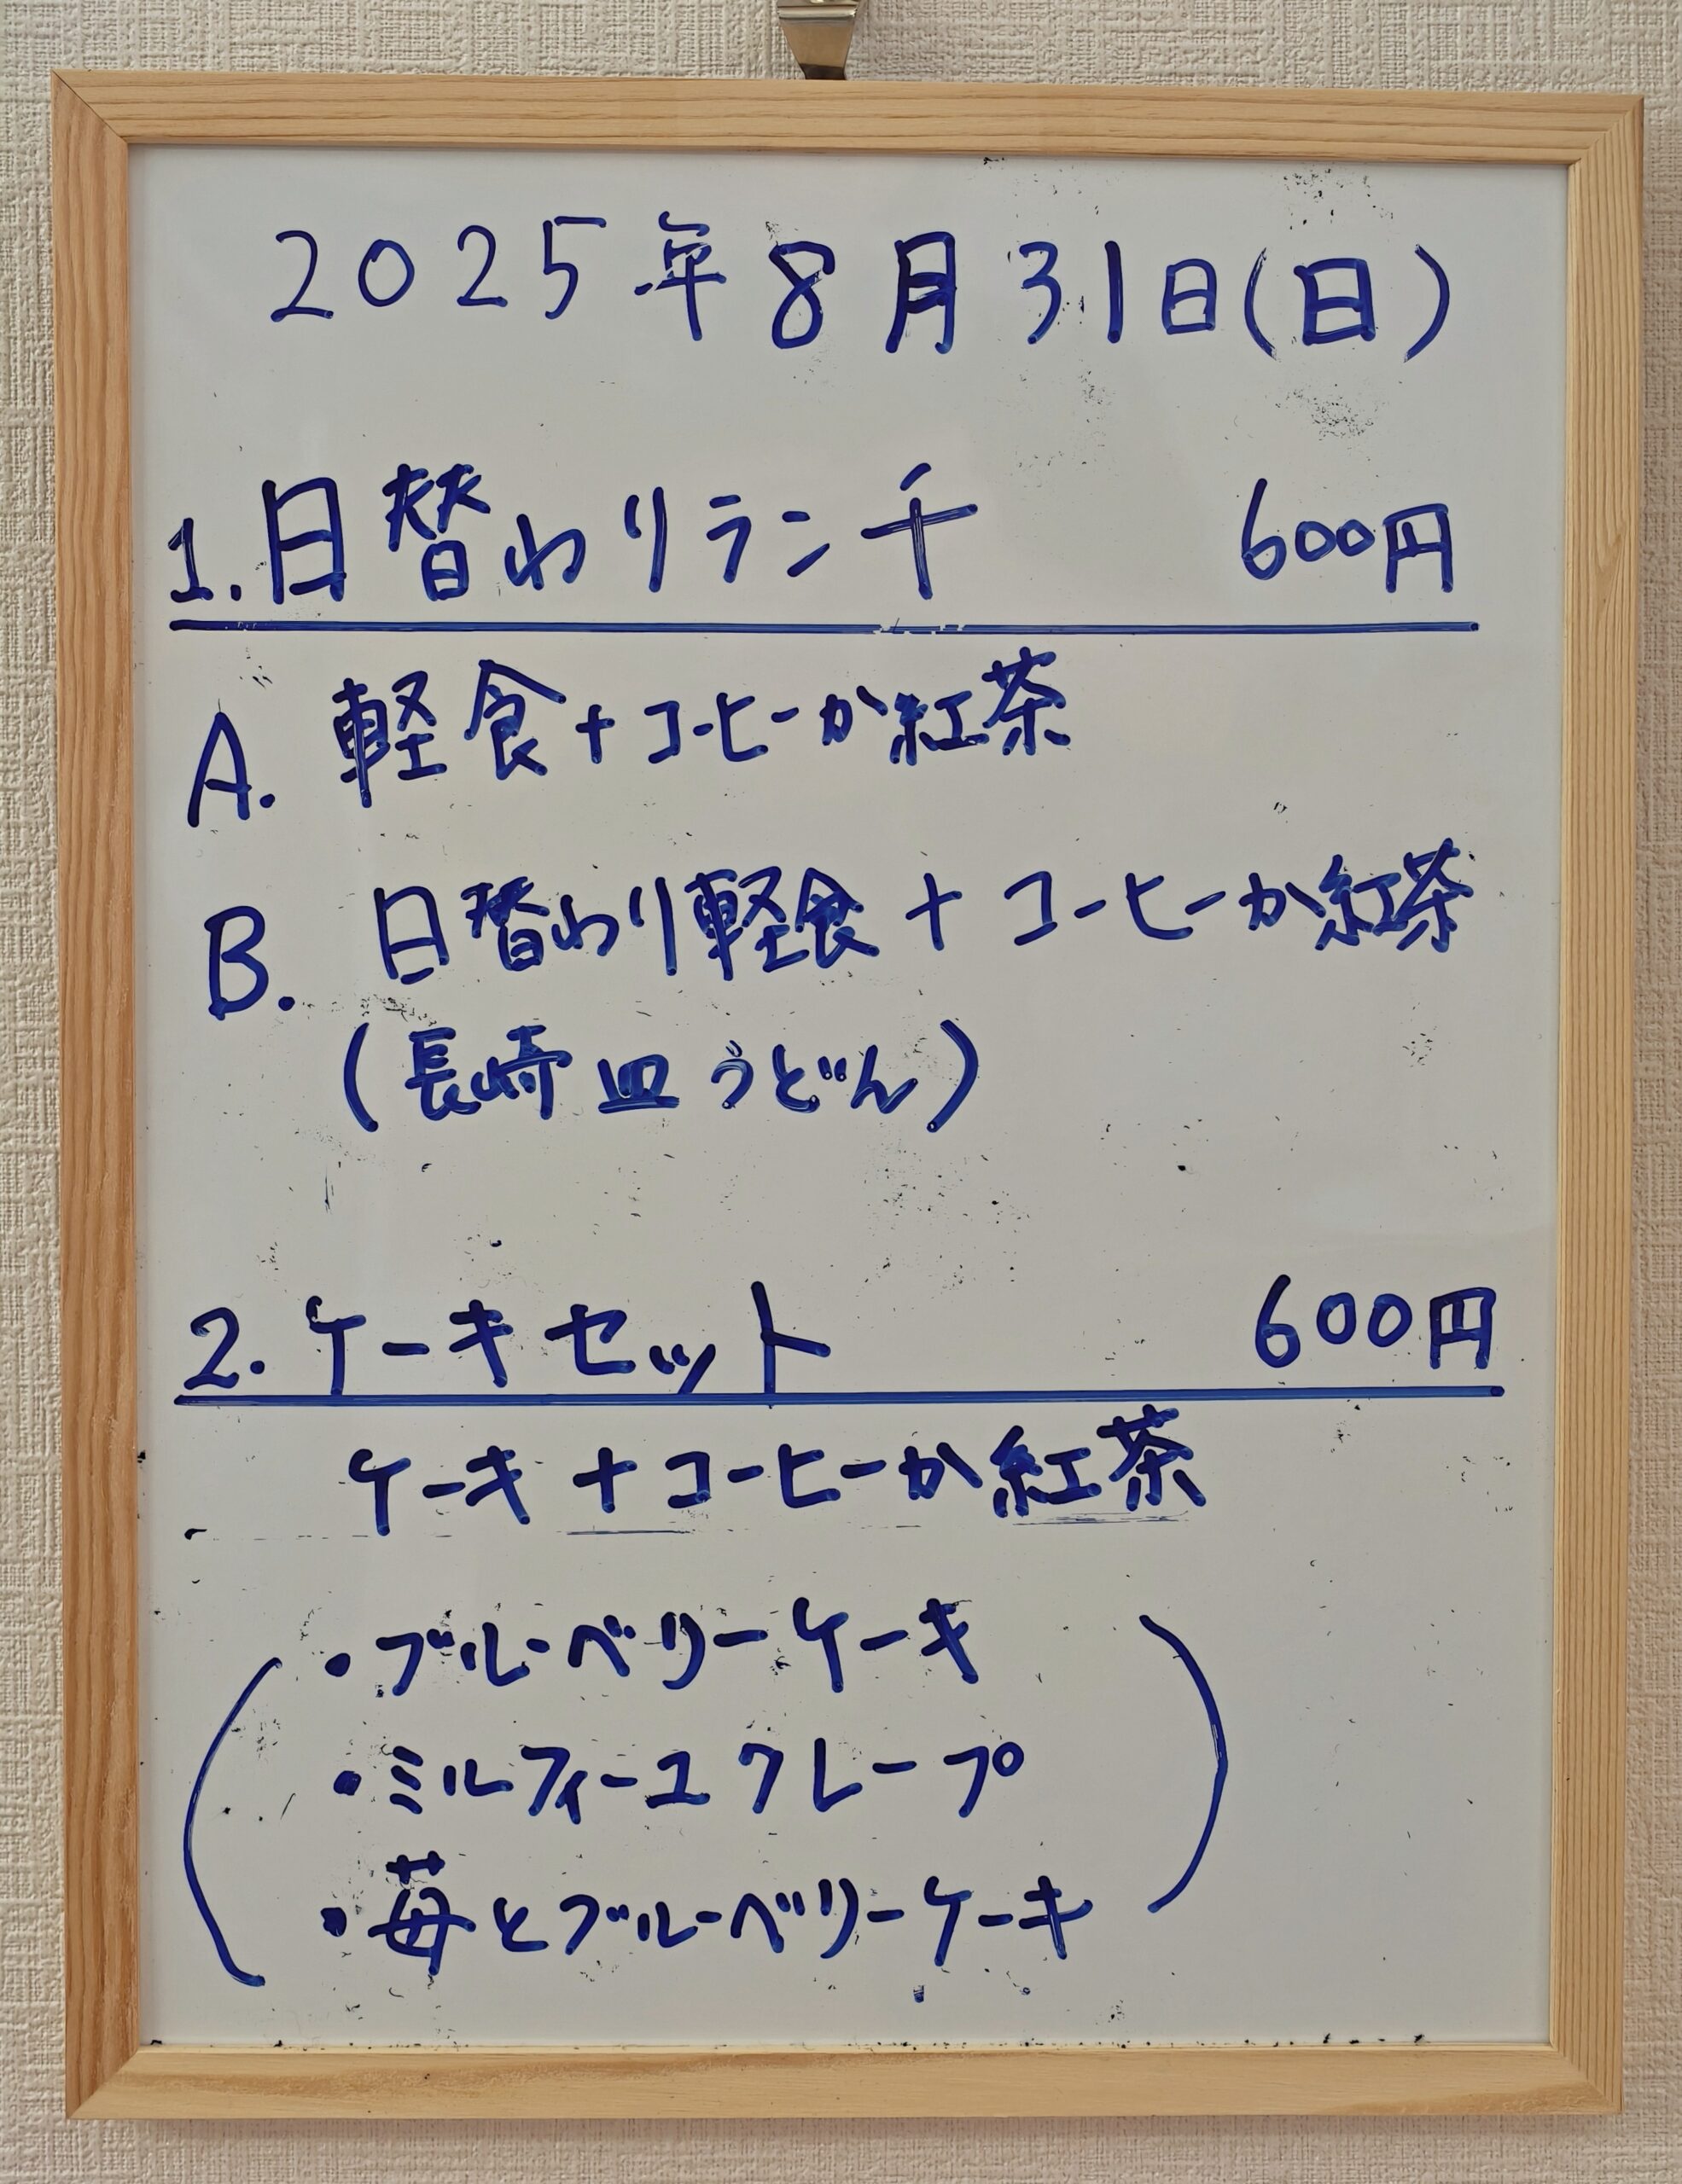 2025年8月31日(日)
1.日替わりランチ 600円
A. 軽食+コーヒーか紅茶
B. 日替わり軽食+コーヒーか紅茶
(長崎皿うどん)
2.ケーキセット 600円
ケーキ+コーヒーか紅茶
・ブルーベリーケーキ
・ミルフィーユクレープ
・苺とブルーベリーケーキ